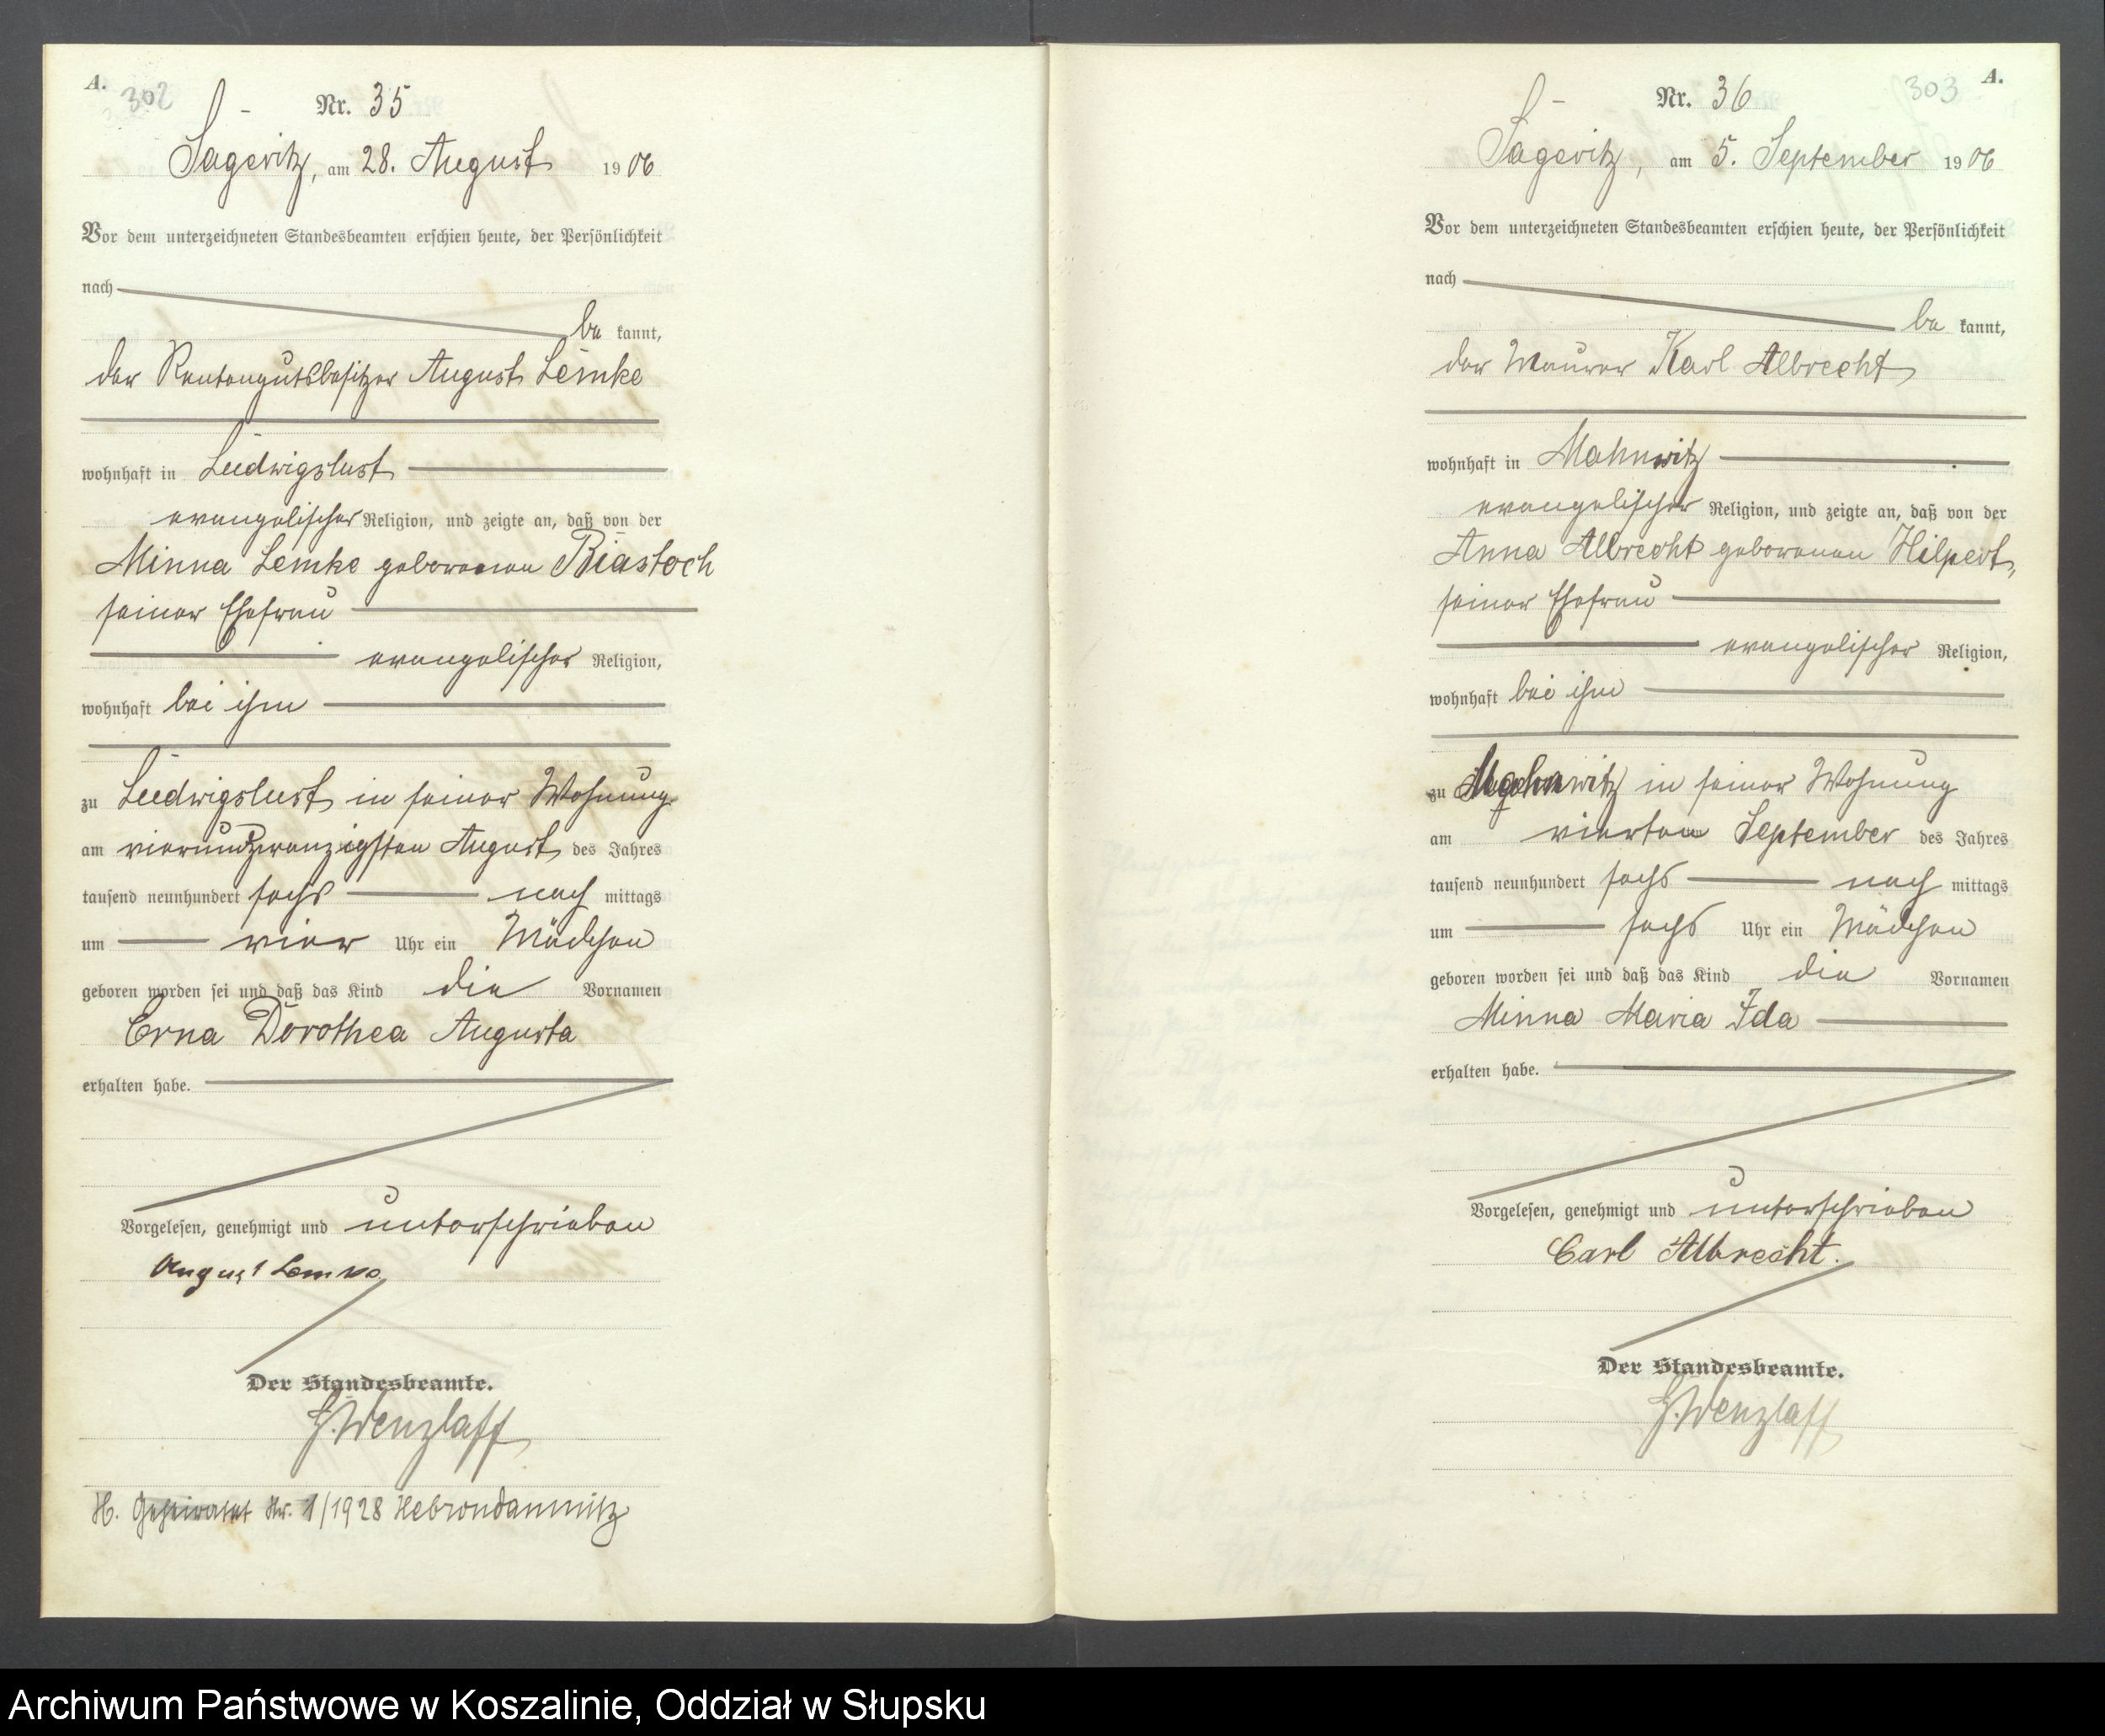 A.
302
Nr. 35
Sageritz, am 28. August 1906
Vor dem unterzeichneten Standesbeamten erschien heute, der Persönlichkeit
nach
be kannt,
der Rentengutsbesitzer August Lemke
wohnhaft in Ludwigslust
evangelischer Religion, und zeigte an, daß von der
Minna Lemke geborenen Biastoch
seiner Ehefrau
evangelischer Religion,
wohnhaft bei ihm
zu Ludwigslust in seiner Wohnung
am vierundzwanzigsten August des Jahres
tausend neunhundert sechs nach mittags
um vier Uhr ein Mädchen
geboren worden sei und daß das Kind die Vornamen
Erna Dorothea Augusta
erhalten habe.
Vorgelesen, genehmigt und unterschrieben
August Lemke
Der Standesbeamte.
Wenzlaff
H. Geheiratet Nr. 1/1928 Hebrondamnitz
A.
303
Nr. 36
Sageritz, am 5. September 1906
Vor dem unterzeichneten Standesbeamten erschien heute, der Persönlichkeit
nach
be kannt,
der Maurer Karl Albrecht
wohnhaft in Mahnwitz
evangelischer Religion, und zeigte an, daß von der
Anna Albrecht geborenen Hilpert,
seiner Ehefrau
evangelischer Religion,
wohnhaft bei ihm
zu Mahnwitz in seiner Wohnung
am vierten September des Jahres
tausend neunhundert sechs nach mittags
um sechs Uhr ein Mädchen
geboren worden sei und daß das Kind die Vornamen
Minna Maria Ida
erhalten habe.
Vorgelesen, genehmigt und unterschrieben
Carl Albrecht.
Der Standesbeamte.
Wenzlaff
Archiwum Państwowe w Koszalinie, Oddział w Słupsku